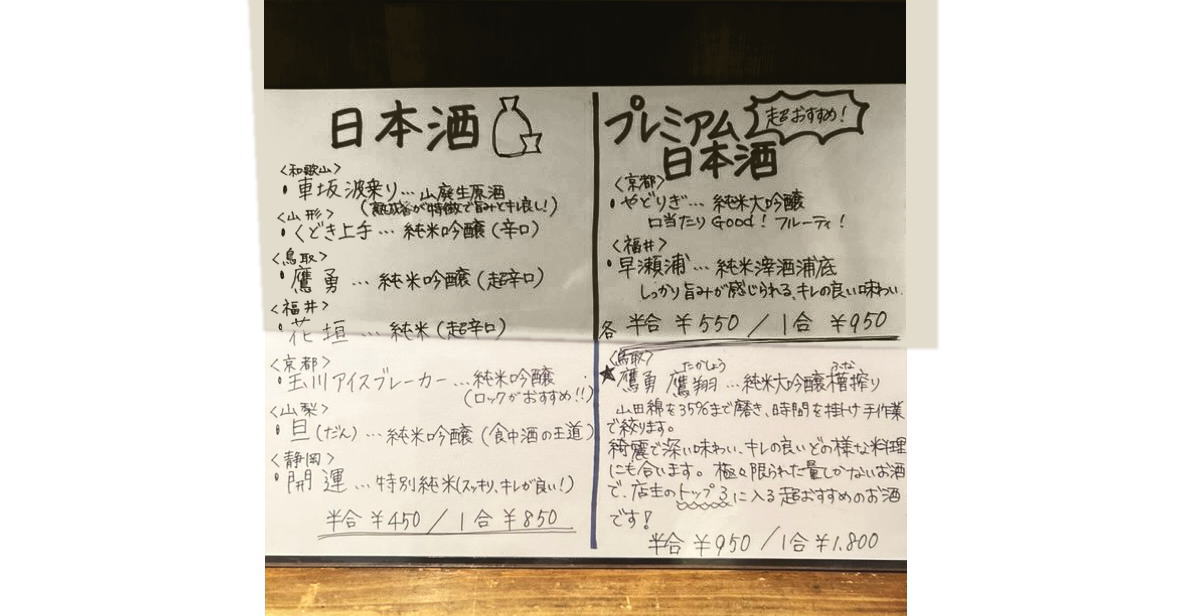 日本酒
<和歌山>
・車坂 波乗り…山廃生原酒
(熟成香が特徴で旨みとキレ良し!)
<山形>
・くどき上手…純米吟醸(辛口)
<鳥取>
・鷹勇…純米吟醸(超辛口)
<福井>
・花垣…純米(超辛口)
<京都>
・玉川アイスブレーカー…純米吟醸
(ロックがおすすめ!!)
<山梨>
・旦(だん)…純米吟醸(食中酒の王道)
<静岡>
・開運…特別純米(スッキリ、キレが良い!)
半合 ¥450 / 1合 ¥850
プレミアム
超おすすめ!
日本酒
<京都>
・やどりぎ…純米大吟醸
口当たりGood! フルーティ!
<福井>
・早瀬浦…純米滓酒浦底
しっかり旨みが感じられる、キレの良い味わい.
各 半合 ¥550 / 1合 ¥950
<鳥取>
たかしょう ふな
★鷹勇 鷹翔…純米大吟醸槽搾り
山田綿を35%まで磨き、時間を掛け手作業
で絞ります。
綺麗で深い味わい、キレの良いどの様な料理
にも合います。極々限られた量しかないお酒
で、店主のトップ3に入る超おすすめのお酒
です!
半合 ¥950 / 1合 ¥1.800